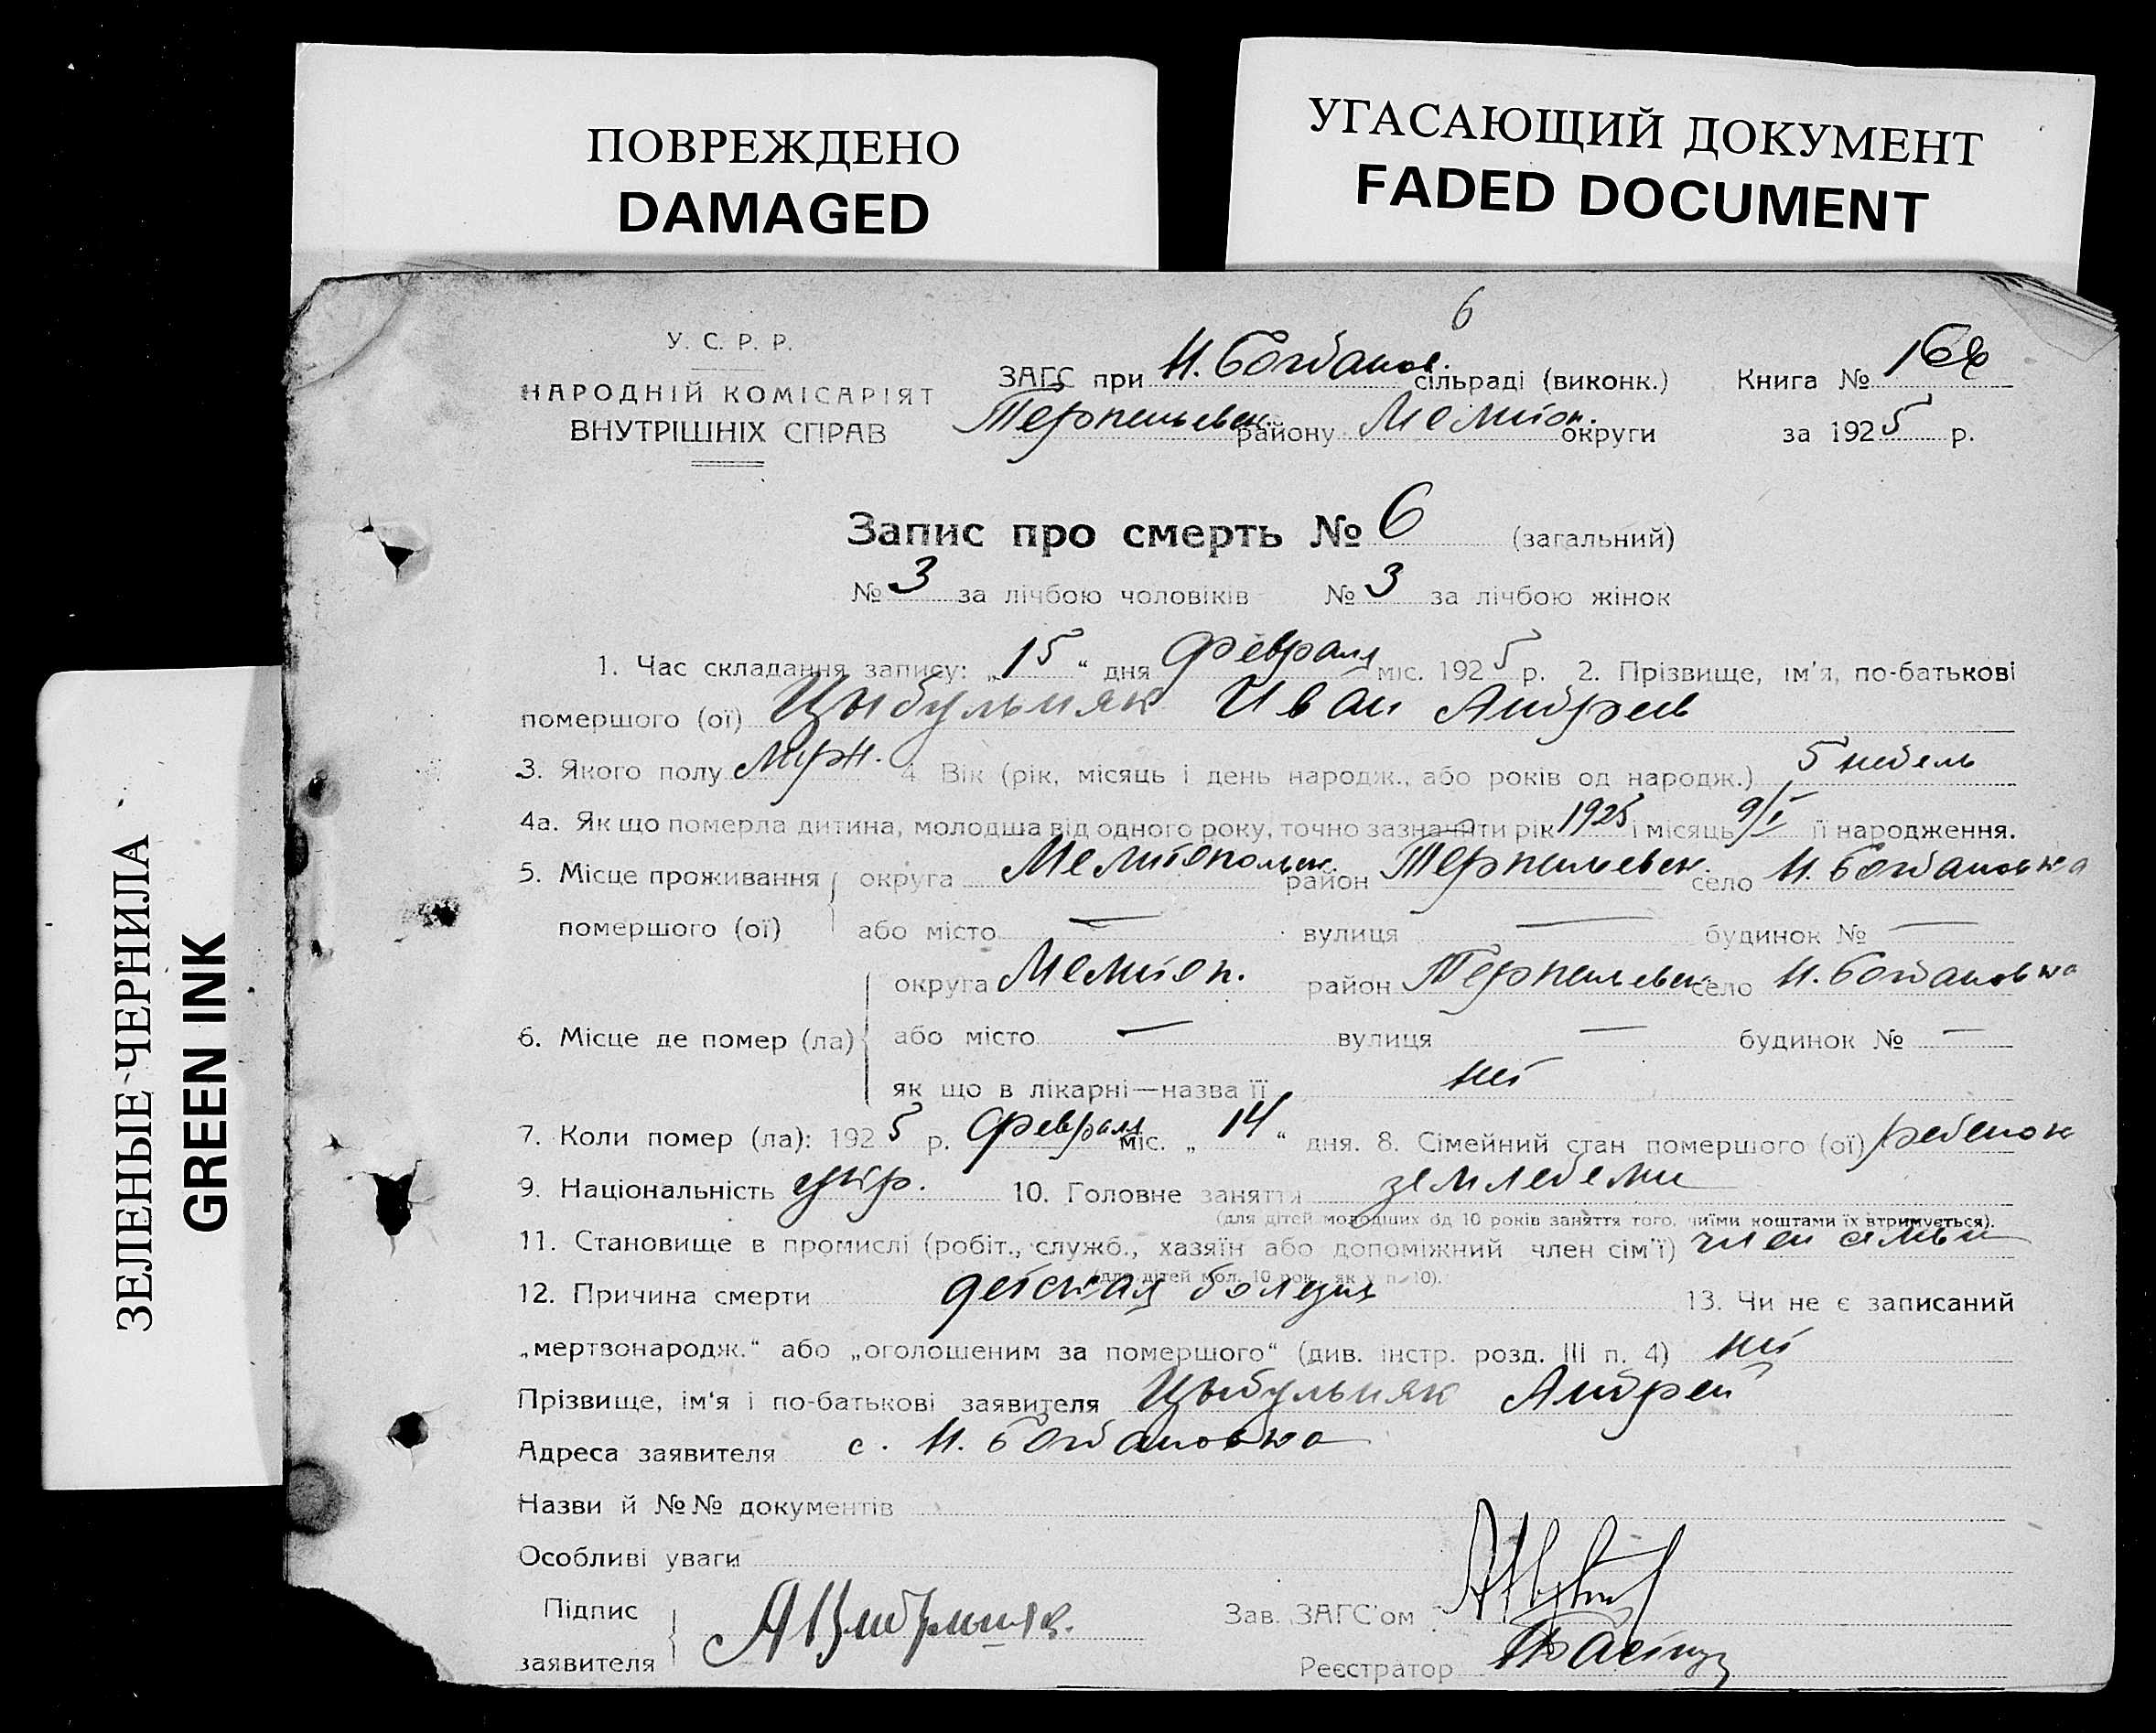 ПОВРЕЖДЕНО
DAMAGED
УГАСАЮЩИЙ ДОКУМЕНТ
FADED DOCUMENT
ЗЕЛЕНЫЕ ЧЕРНИЛА
GREEN INK
6
У. С. Р. Р.
НАРОДНІЙ КОМІСАРІЯТ
ВНУТРІШНІХ СПРАВ
ЗАГС при Н. Богданов. сільраді (виконк.)
Терпеньевск. району Мелитоп. округи
Книга №
за 1925 р.
Запис про смерть № 6 (загальний)
№ 3 за лічбою чоловіків № 3 за лічбою жінок
1. Час складання запису: „15“ дня Февраля міс. 1925 р. 2. Прізвище, ім'я, по-батькові
помершого (ої) Цыбульняк Иван Андреев
3. Якого полу муж. 4 Вік (рік, місяць і день народж., або років од народж.) 5 недель
4а. Як що померла дитина, молодша від одного року, точно зазначити рік 1925 і місяць 9/I її народження.
5. Місце проживання округа Мелитопольск. район Терпеньевск. село Н. Богдановка
помершого (ої) або місто — вулиця — будинок № —
округа Мелитоп. район Терпеньевск село Н. Богдановка
6. Місце де помер (ла) або місто — вулиця — будинок № —
як що в лікарні—назва її нет
7. Коли помер (ла): 1925 р. Февраля міс. „14“ дня. 8. Сімейний стан помершого (ої) ребенок
9. Національність укр. 10. Головне заняття земледелие
(для дітей молодших од 10 років заняття того, чиїми коштами їх втримується).
11. Становище в промислі (робіт., служб., хазяїн або допоміжний член сім'ї) член семьи
(для дітей мол. 10 рок. як у п. 10).
12. Причина смерти детская болезнь 13. Чи не є записаний
„мертвонародж.“ або „оголошеним за помершого“ (див. інстр. розд. III п. 4) нет
Прізвище, ім'я і по-батькові заявителя Цыбульняк Андрей
Адреса заявителя с. Н. Богдановка
Назви й №№ документів
Особливі уваги
Підпис
заявителя
Зав. ЗАГС'ом
Реєстратор